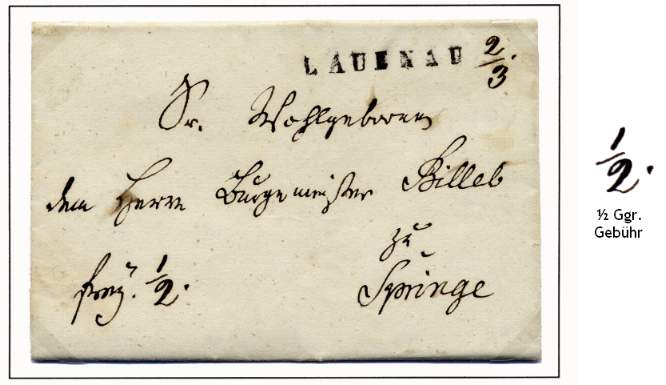 LAUENAU 2/3.
Sr. Wohlgeboren
dem Herrn Burgemeister Billeb
zu
Springe
fray. 1/2.
1/2.
½ Ggr.
Gebühr